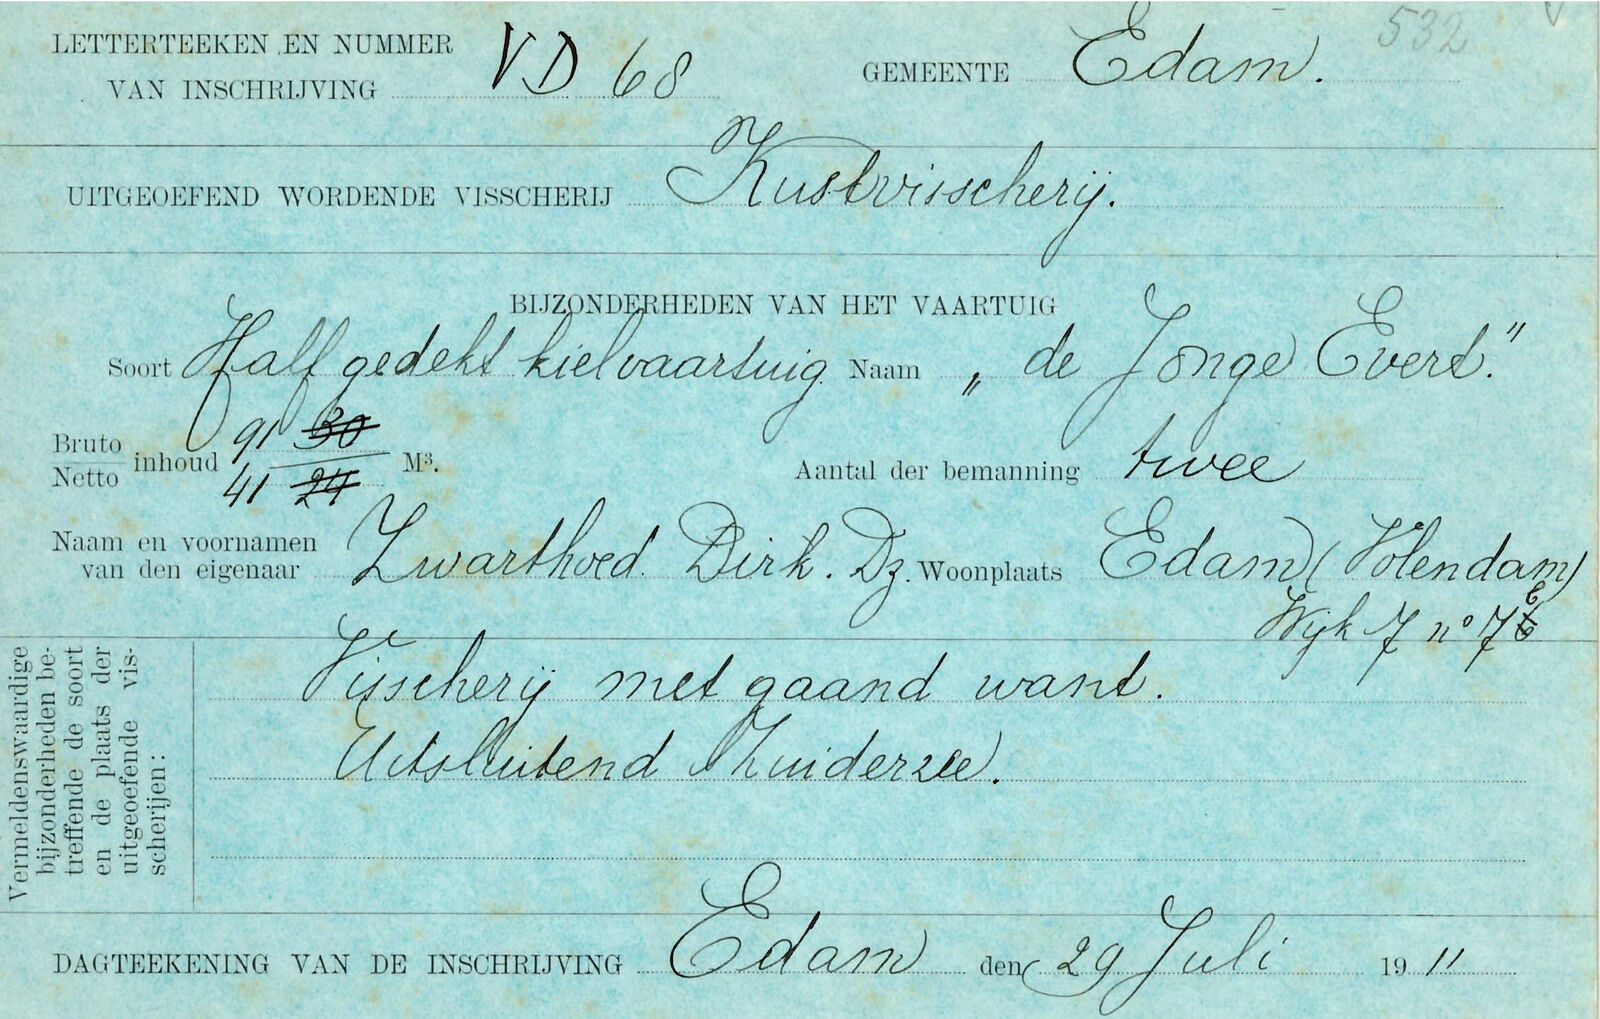 LETTERTEEKEN EN NUMMER
VAN INSCHRIJVING VD 68 GEMEENTE Edam. 532
UITGEOEFEND WORDENDE VISSCHERIJ Kustvisscherij.
BIJZONDERHEDEN VAN HET VAARTUIG
Soort Half gedekt kielvaartuig Naam „ de Jonge Evert."
Bruto 91 30
Netto inhoud 41 24 M³. Aantal der bemanning twee
Naam en voornamen
van den eigenaar Zwarthoed Dirk. Dz. Woonplaats Edam (Volendam)
Wijk 7 no 7
Vermeldenswaardige
bijzonderheden be-
treffende de soort
en de plaats der
uitgeoefende vis-
scherijen:
Visscherij met gaand want.
Uitsluitend Zuiderzee.
DAGTEEKENING VAN DE INSCHRIJVING Edam den 29 Juli 1911